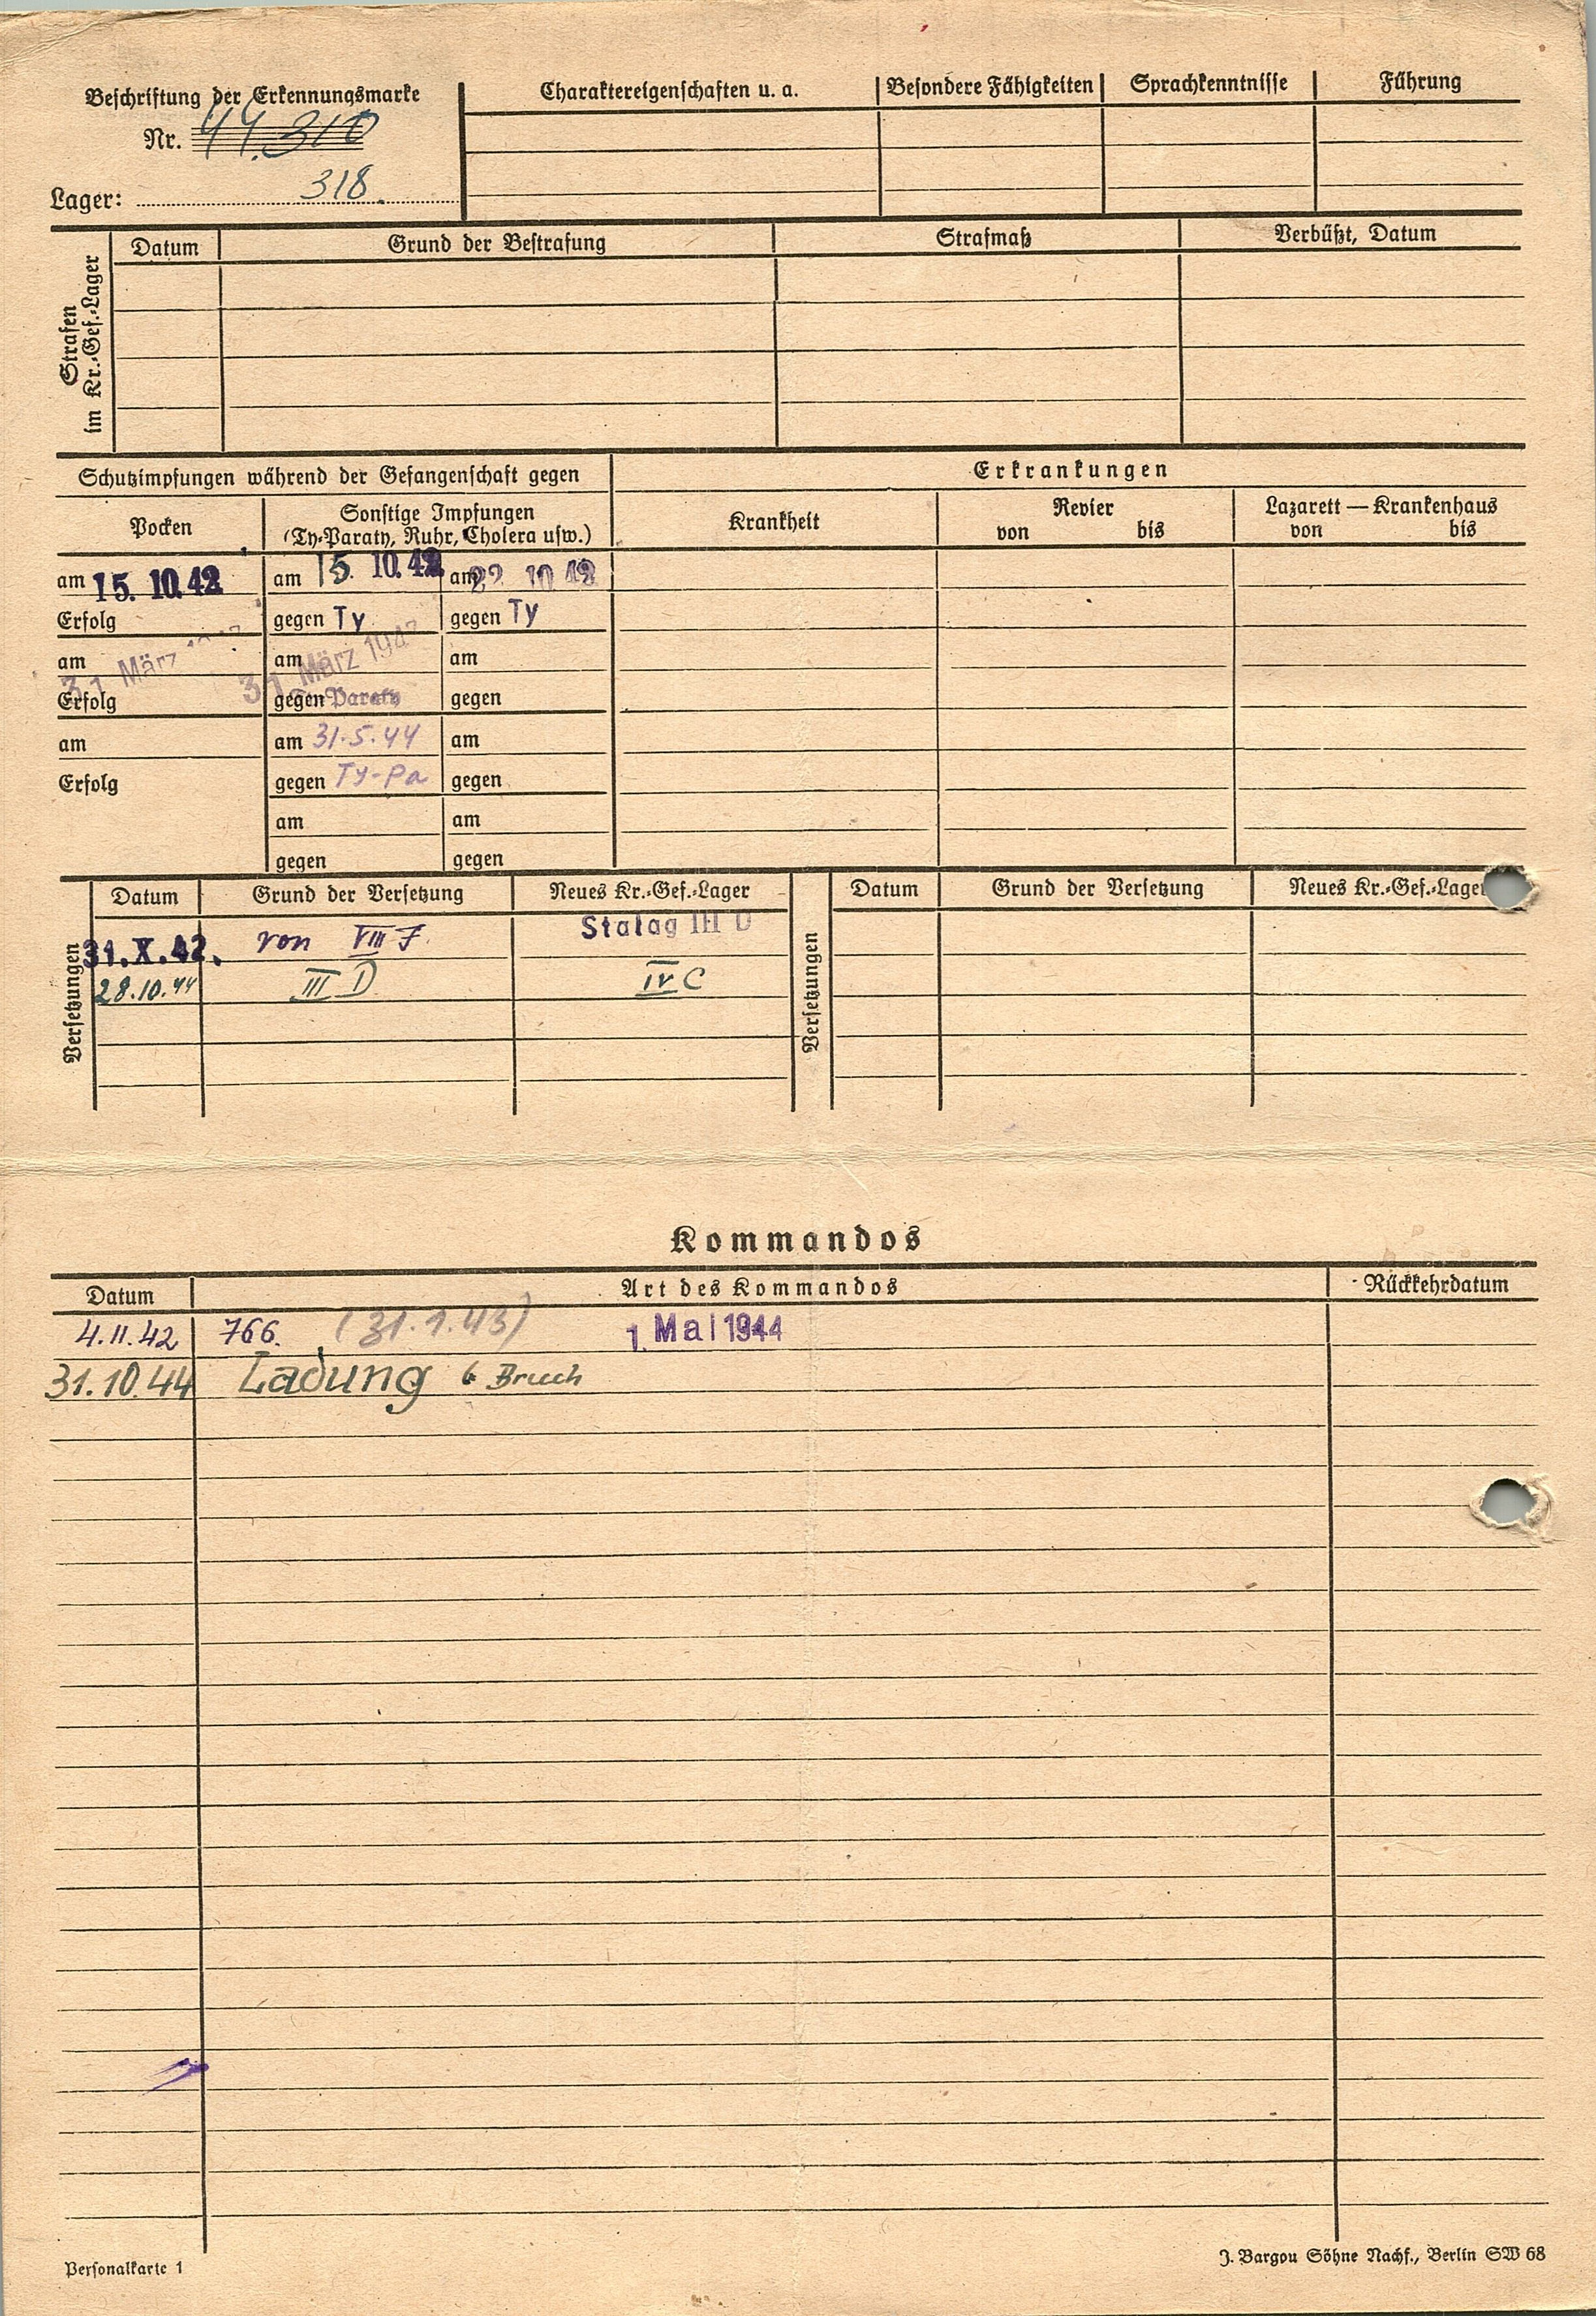 Beschriftung der Erkennungsmarke
Nr. 44.310
Lager: 318.
Charaktereigenschaften u. a. Besondere Fähigkeiten Sprachkenntnisse Führung
Strafen im Kr.-Gef.-Lager
Datum Grund der Bestrafung Strafmaß Verbüßt, Datum
Schutzimpfungen während der Gefangenschaft gegen
Erkrankungen
Pocken
Sonstige Impfungen
(Ty-Paraty, Ruhr, Cholera usw.)
Krankheit
Revier
von bis
Lazarett — Krankenhaus
von bis
am 15. 10. 42 am 15. 10. 42 am 22 10 42
Erfolg gegen Ty gegen Ty
am 31 März am 31 März 194 am
Erfolg gegen Paraty gegen
am am 31.5.44 am
Erfolg gegen Ty-Pa gegen
am am
gegen gegen
Versetzungen
Datum Grund der Versetzung Neues Kr.-Gef.-Lager
31. X. 42. von VIII F. Stalag III D
28.10.44 III D IV C
Versetzungen
Datum Grund der Versetzung Neues Kr.-Gef.-Lager
Kommandos
Datum Art des Kommandos Rückkehrdatum
4.11.42 766. (31.1.43) 1. Mai 1944
31.10.44 Ladung Bruch
Personalkarte 1
J. Bargou Söhne Nachf., Berlin SW 68